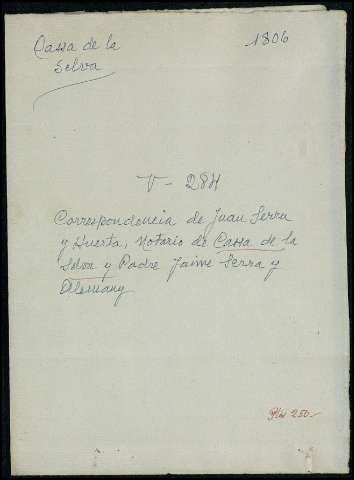 Cassa de la
Selva
1806
V - 284
Correspondencia de Juan Serra
y Huerta, Notario de Cassa de la
Selva y Padre Jaime Serra y
Alemany
Ptas 250.-